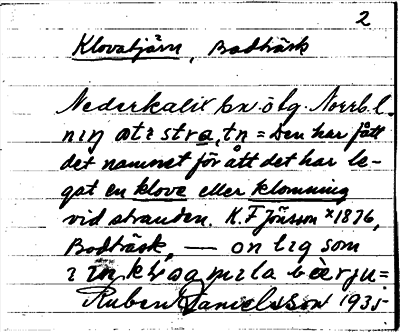 2
Klovatjärn, Bodträsk
Nederkalix bn. ö lg. Norrb. l.
nιη stra, tn = Den har fått
det namnet för att det har le-
gat en klove eller klomning
vid stranden. K. F Jönsson *1876,
Bodträsk, — on lιg som
gamla
Ruben Danielsson 1935